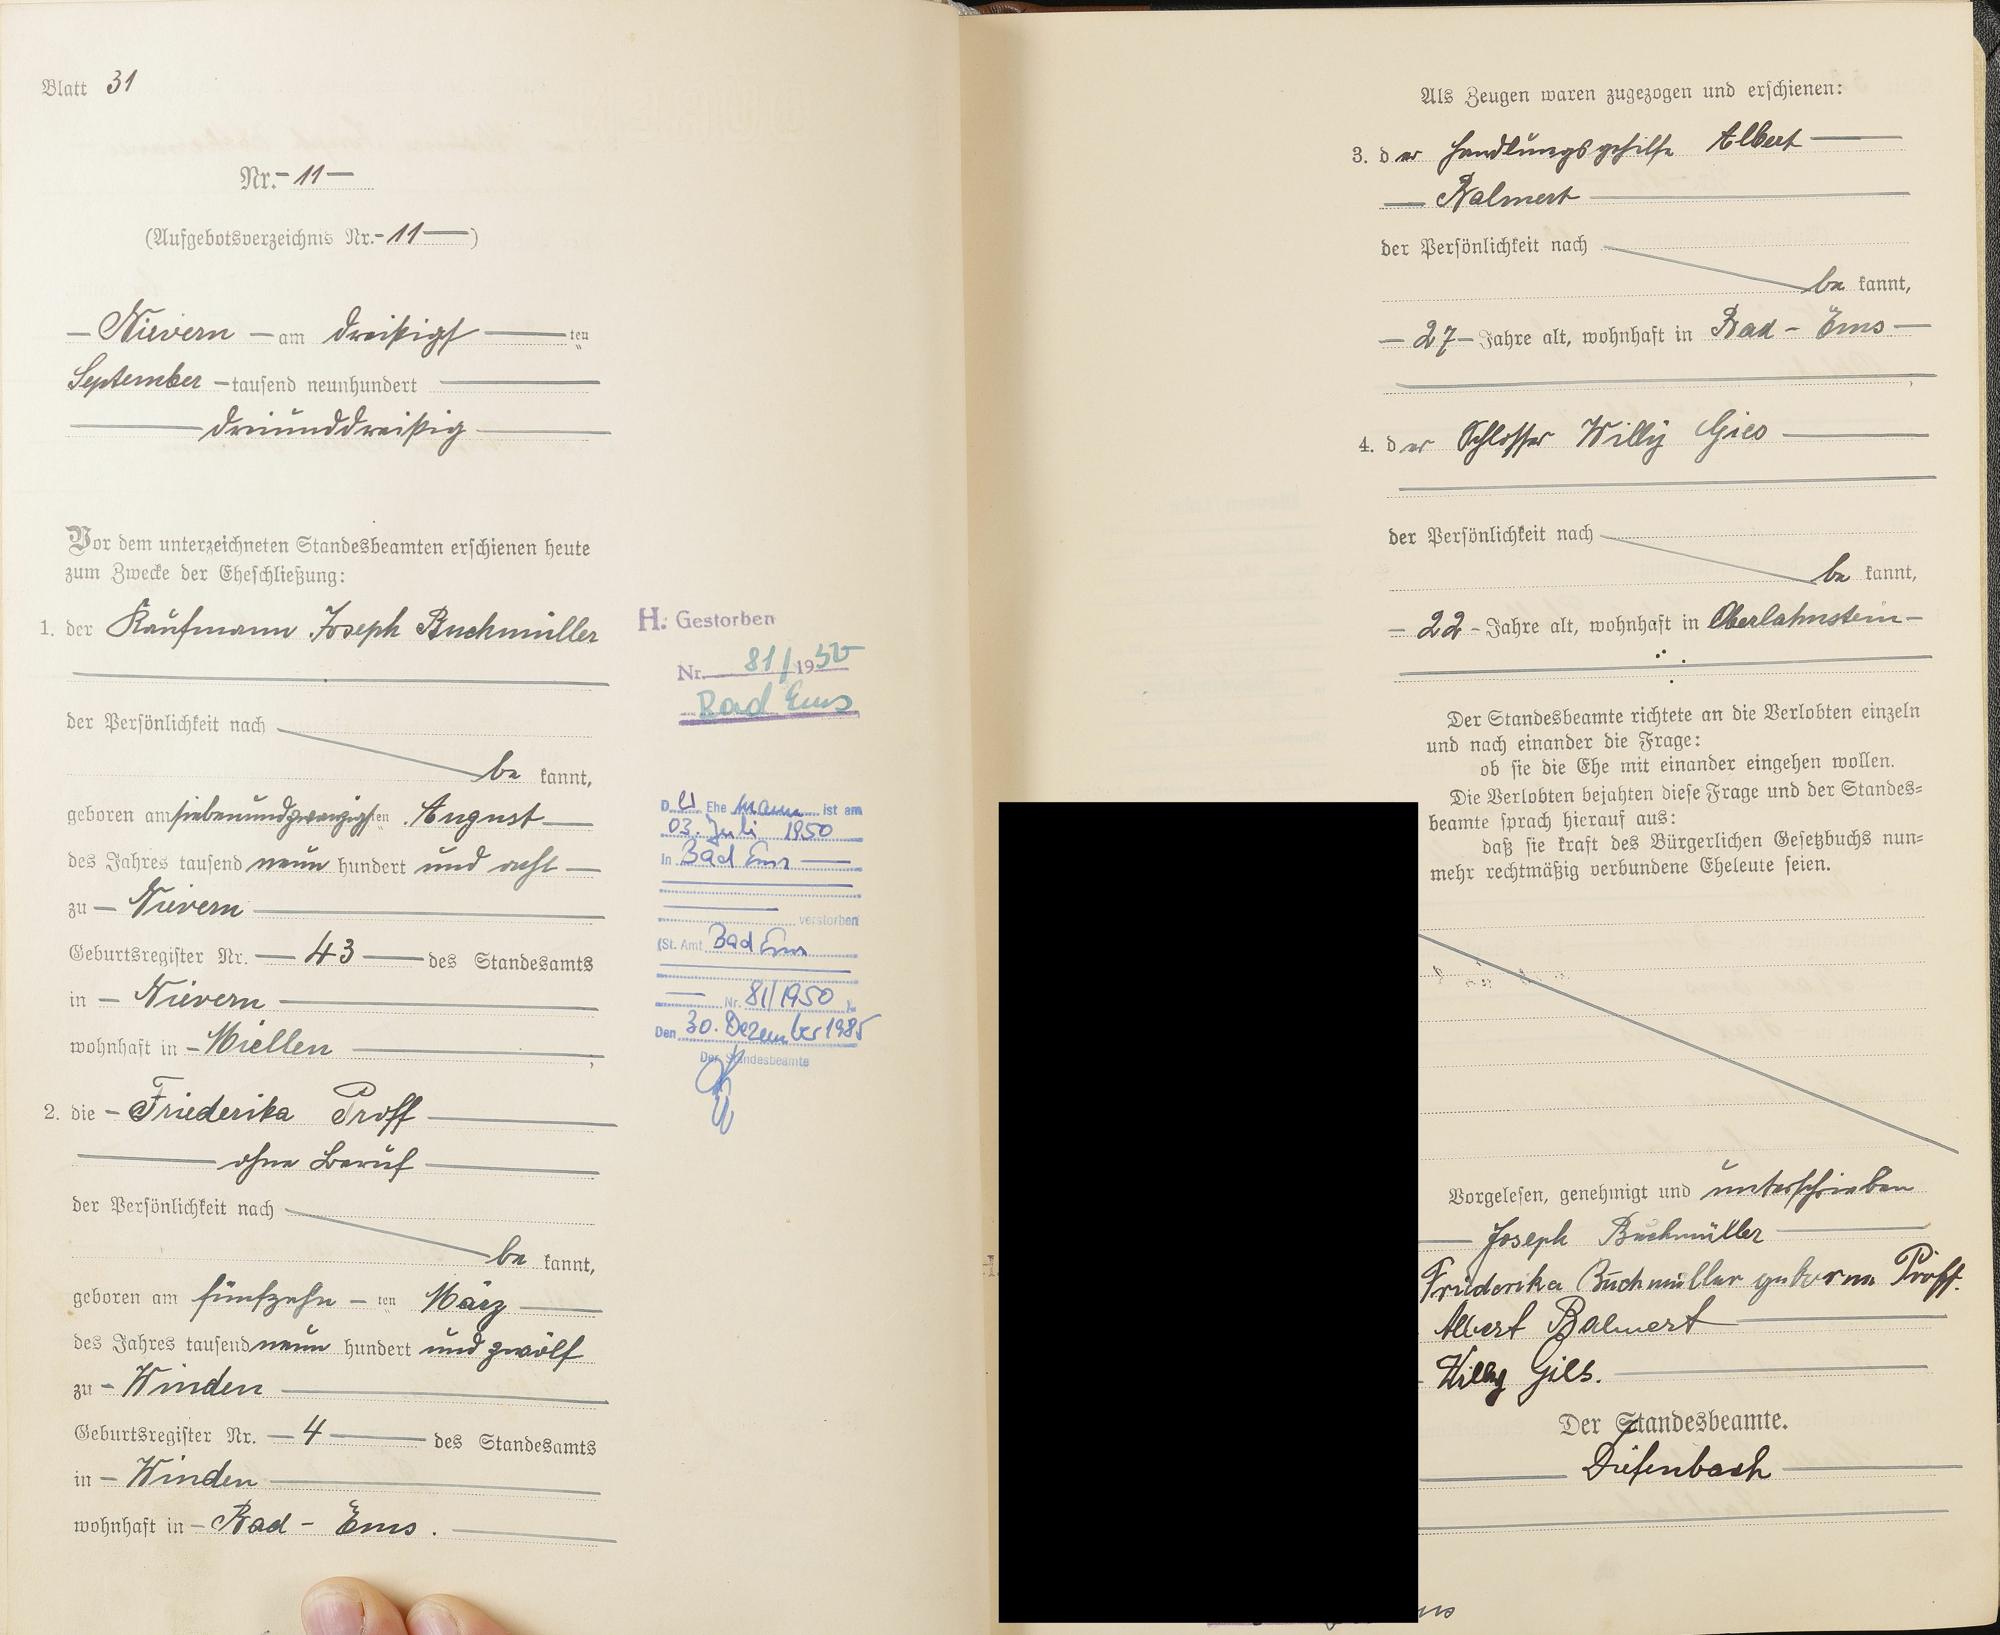 Blatt 31
Nr. - 11 -
(Aufgebotsverzeichnis Nr. - 11 - )
- Nievern - am dreißigs - ten
September - tausend neunhundert
dreiunddreißig
Vor dem unterzeichneten Standesbeamten erschienen heute
zum Zwecke der Eheschließung:
1. der Kaufmann Joseph Buchmüller
der Persönlichkeit nach
be kannt,
geboren am siebenundzwanzigsten August
des Jahres tausend neun hundert und acht
zu - Nievern
Geburtsregister Nr. - 43 - des Standesamts
in - Nievern
wohnhaft in - Miellen
2. die - Friederika Proff
ohne Beruf
der Persönlichkeit nach
be kannt,
geboren am fünfzehn - ten März
des Jahres tausend neun hundert und zwölf
zu - Winden
Geburtsregister Nr. - 4 - des Standesamts
in - Winden
wohnhaft in - Bad - Ems.
H: Gestorben
Nr. 81/1950
Bad Ems
D er Ehe mann ist am
03. Juli 1950
in Bad Ems
verstorben
(St. Amt Bad Ems
Nr. 81/1950 ).
Den 30. Dezember 1985
Der Standesbeamte
Als Zeugen waren zugezogen und erschienen:
3. der Handlungsgehilfe Albert
- Balmert
der Persönlichkeit nach
be kannt,
- 27 - Jahre alt, wohnhaft in Bad - Ems -
4. der Schlosser Willy Gies
der Persönlichkeit nach
be kannt,
- 22 - Jahre alt, wohnhaft in Oberlahnstein -
Der Standesbeamte richtete an die Verlobten einzeln
und nach einander die Frage:
ob sie die Ehe mit einander eingehen wollen.
Die Verlobten bejahten diese Frage und der Standes-
beamte sprach hierauf aus:
daß sie kraft des Bürgerlichen Gesetzbuchs nun-
mehr rechtmäßig verbundene Eheleute seien.
Vorgelesen, genehmigt und unterschrieben
Joseph Buchmüller
Friederika Buchmüller geborene Proff.
Albert Balmert
Willy Gies.
Der Standesbeamte.
Diefenbach